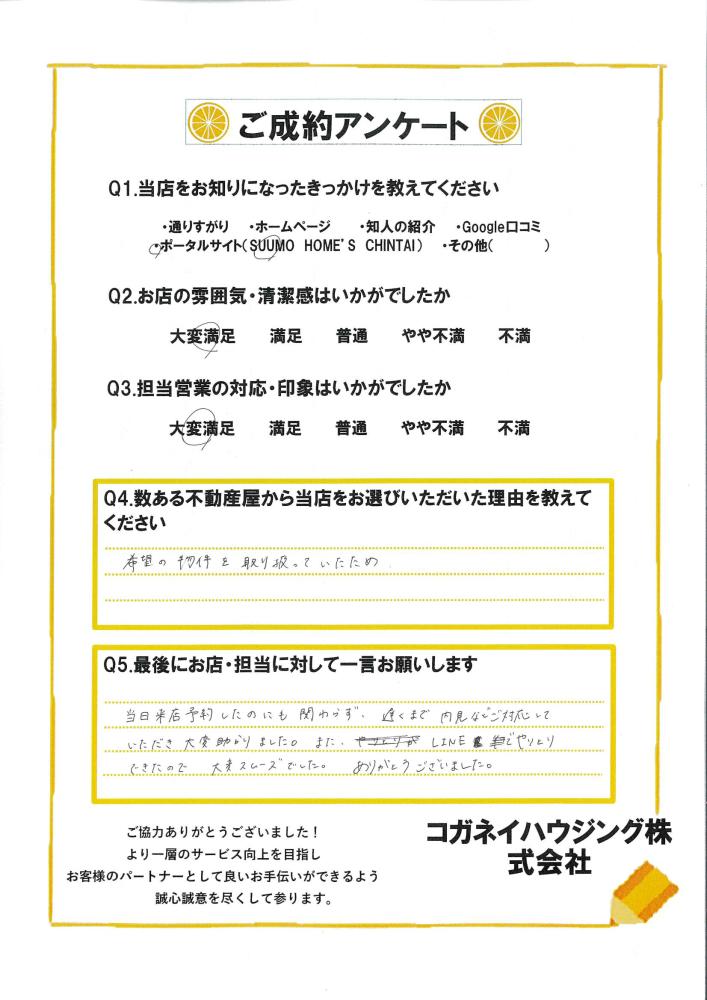 ご成約アンケート
Q1.当店をお知りになったきっかけを教えてください
・通りすがり ・ホームページ ・知人の紹介 ・Google口コミ
・ポータルサイト(SUUMO HOME'S CHINTAI) ・その他( )
Q2.お店の雰囲気・清潔感はいかがでしたか
大変満足 満足 普通 やや不満 不満
Q3.担当営業の対応・印象はいかがでしたか
大変満足 満足 普通 やや不満 不満
Q4.数ある不動産屋から当店をお選びいただいた理由を教えて
ください
希望の物件を取り扱っていたため
Q5.最後にお店・担当に対して一言お願いします
当日来店予約したのにも関わらず、遅くまで内見などご対応して
いただき大変助かりました。また、LINEでやりとり
できたので 大変スムーズでした。 ありがとうございました。
ご協力ありがとうございました！
より一層のサービス向上を目指し
お客様のパートナーとして良いお手伝いができるよう
誠心誠意を尽くして参ります。
コガネイハウジング株
式会社